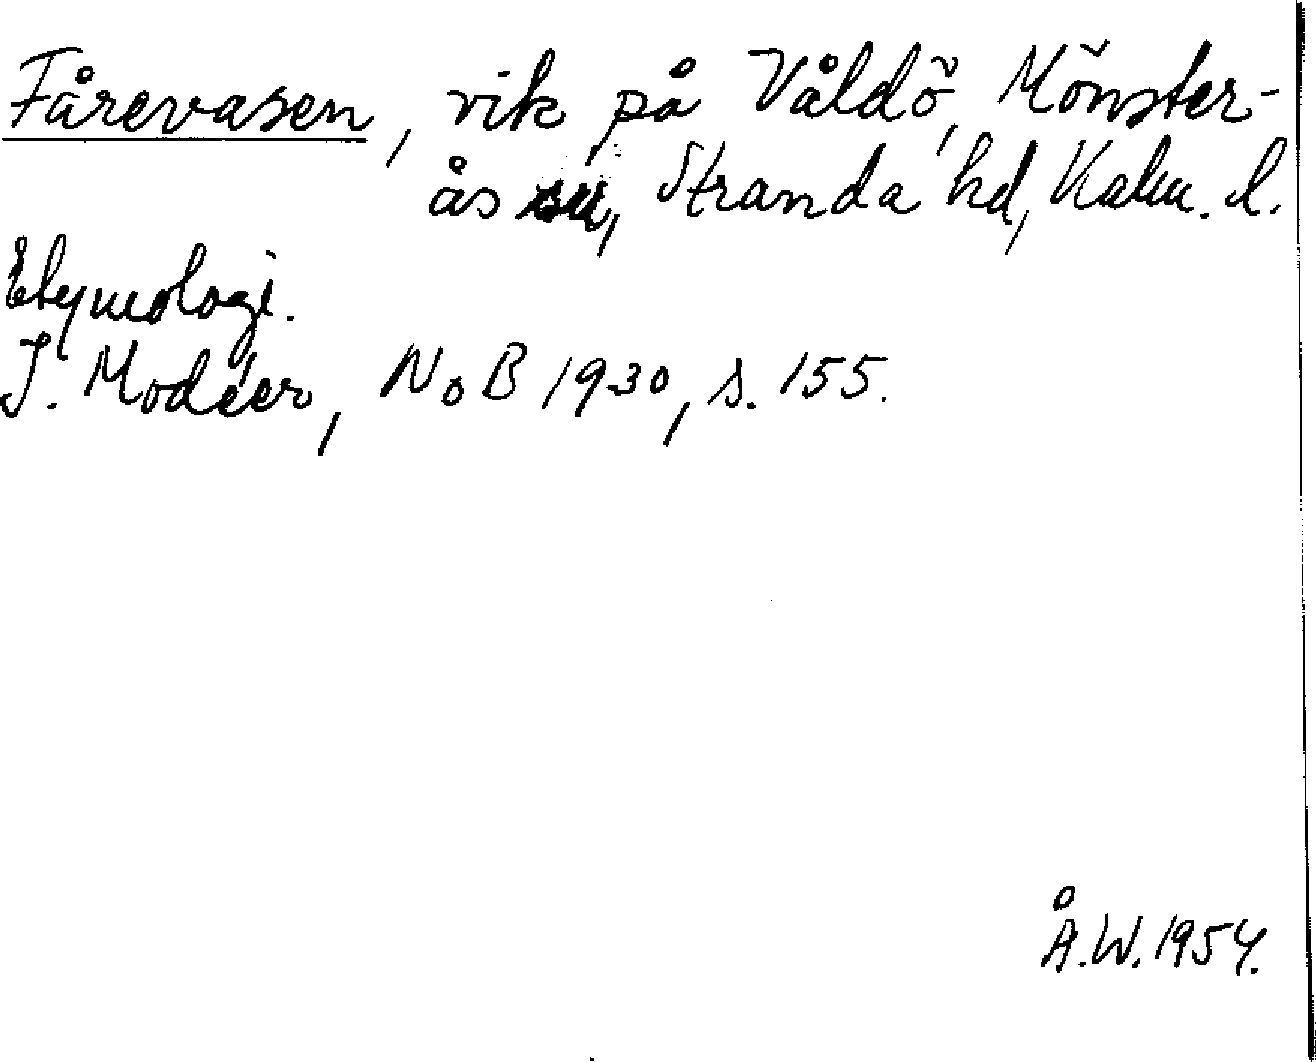 Fårevasen, vik på Våldö, Mönster-
ås sn, Stranda hd, Kalm. l.
Etymologi.
I. Modéer, NoB 1930, s. 155.
Å.W. 1954.